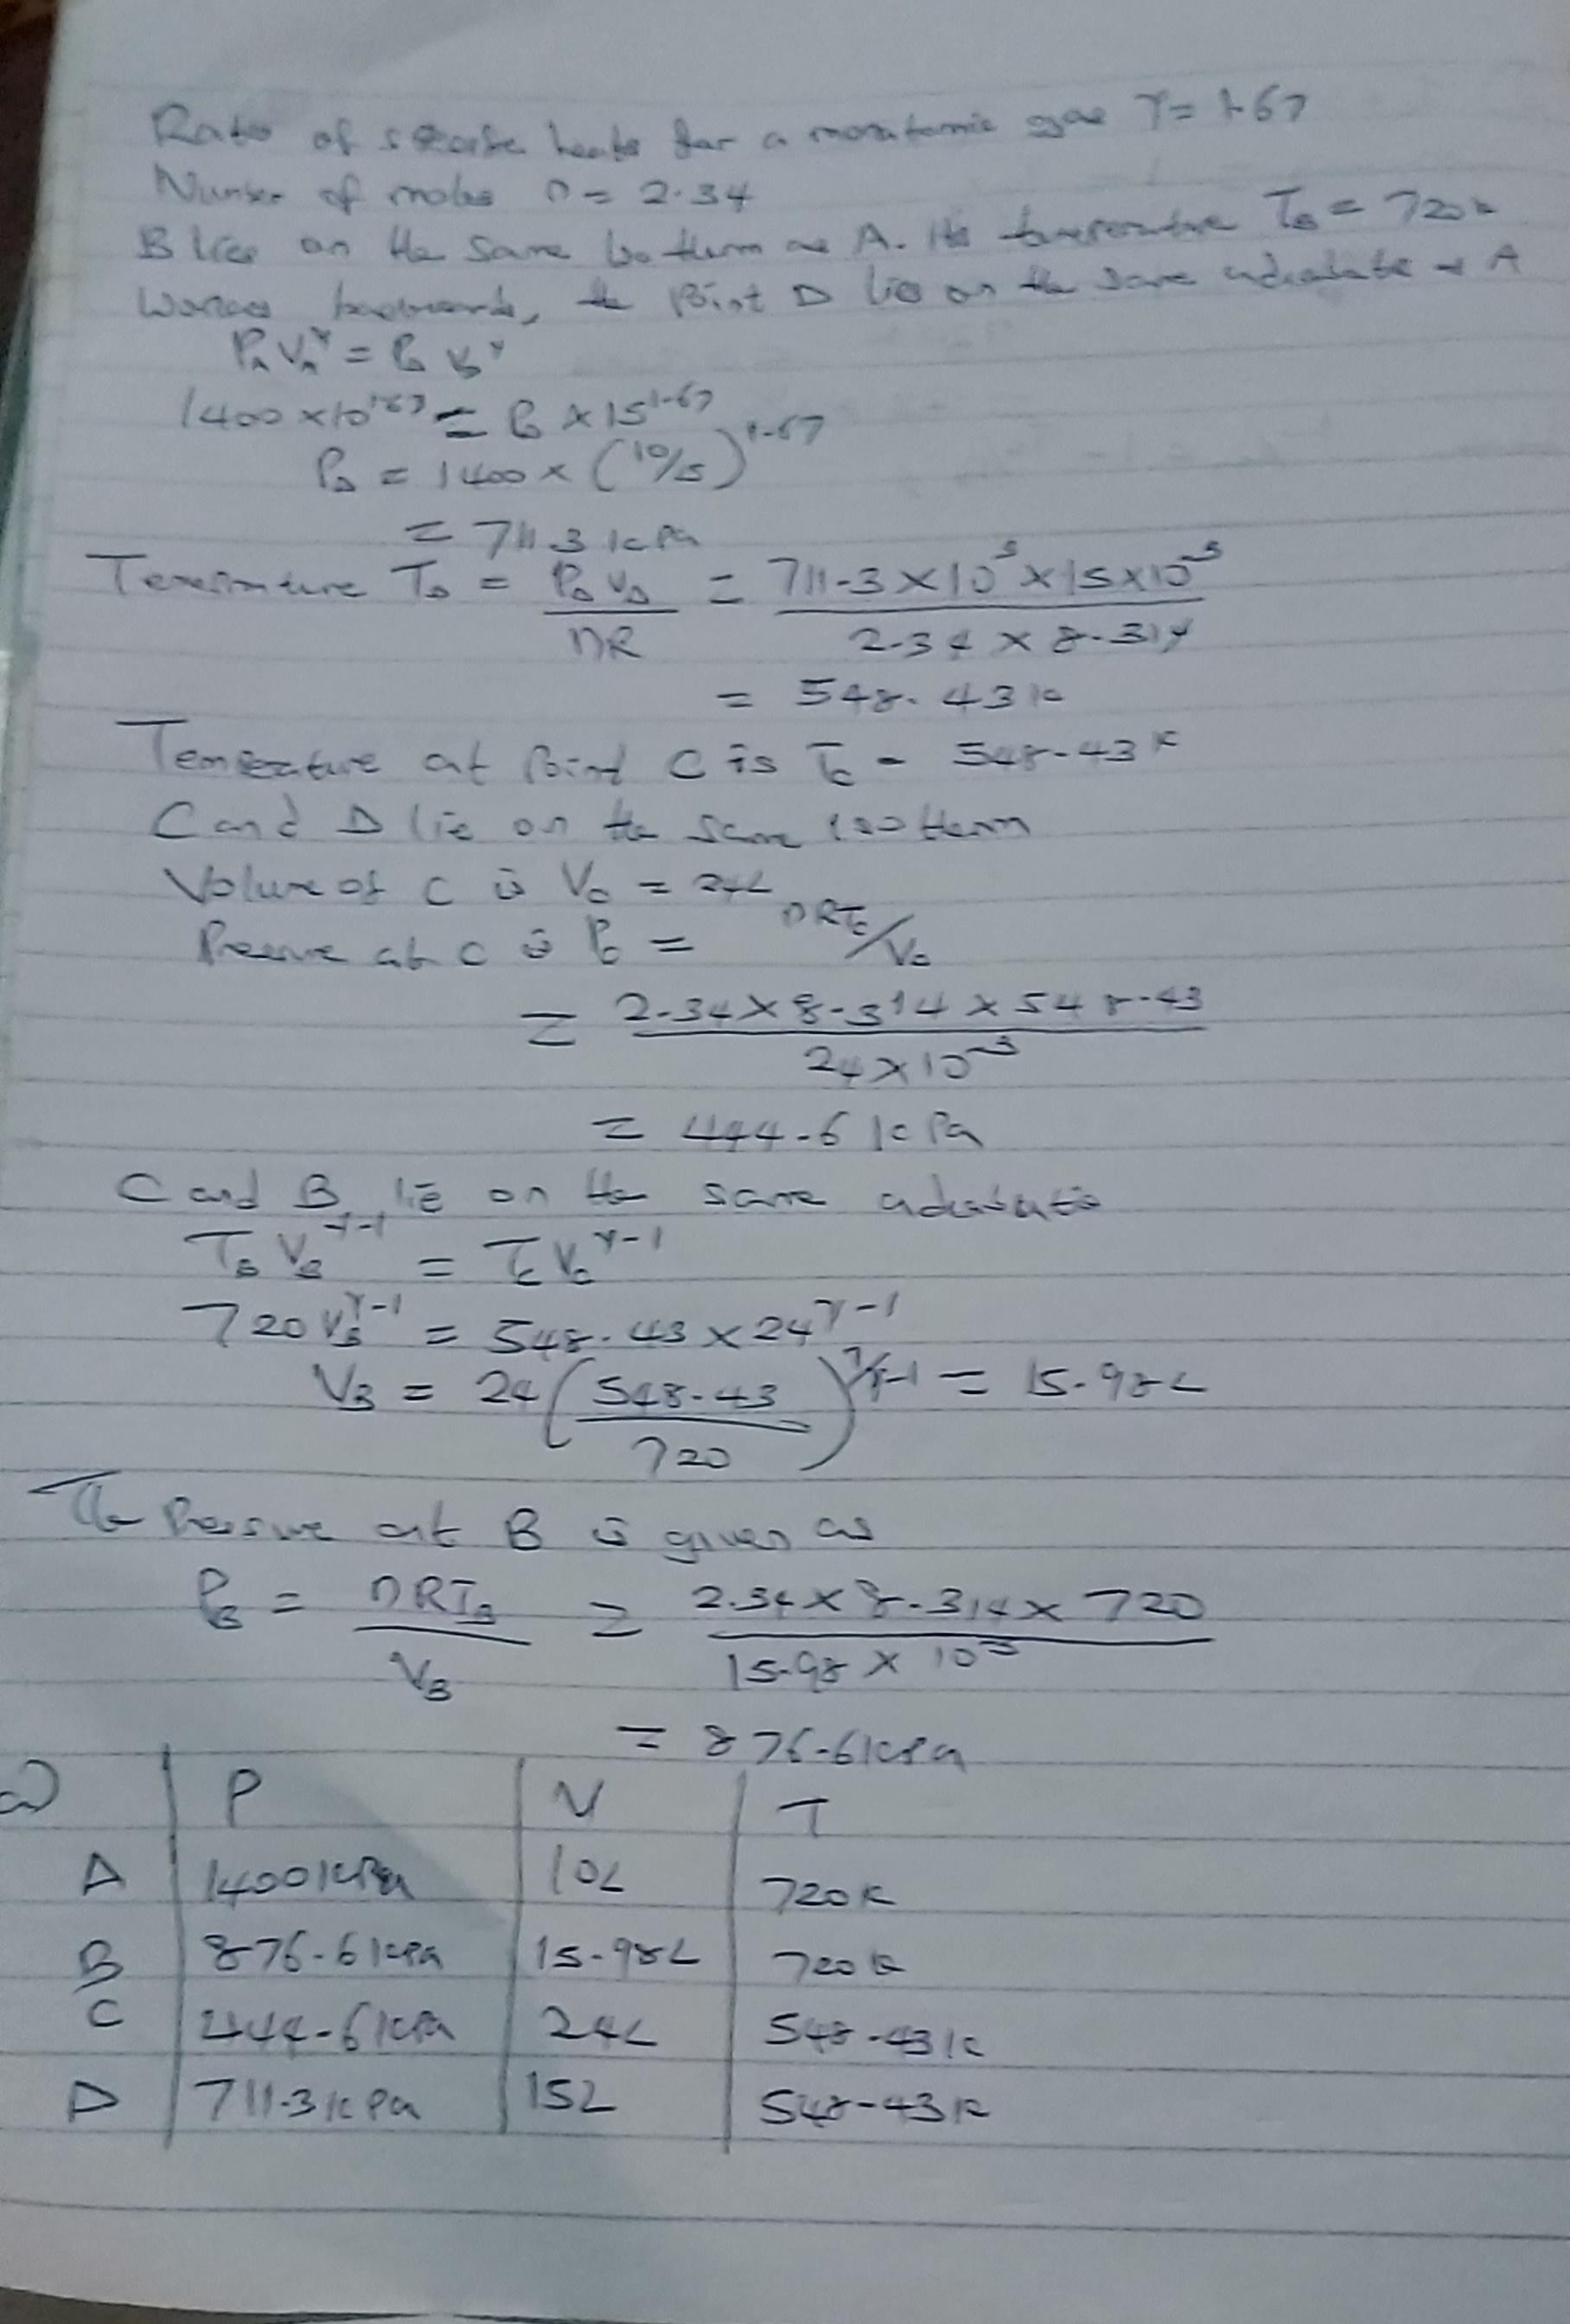 Ratio of specific heats for a monatomic gas γ = 1.67
Number of moles n = 2.34
B lies on the same isotherm as A. Its temperature T_B = 720K
Works backwards, the point D lies on the same adiabatic as A
P_A V_A^γ = P_D V_D^γ
1400 × 10^1.67 = P_D × 15^1.67
P_D = 1400 × (10/15)^1.67
= 711.3 kPa
Temperature T_D = P_D V_D / nR = 711.3 × 10^3 × 15 × 10^-3 / 2.34 × 8.314
= 548.43 K
Temperature at Point C is T_C = 548.43 K
C and D lie on the same isotherm
Volume of C is V_C = 24L
Pressure at C is P_C = nRT_C / V_C
= 2.34 × 8.314 × 548.43 / 24 × 10^-3
= 444.6 kPa
C and B lie on the same adiabatic
T_B V_B^γ-1 = T_C V_C^γ-1
720 V_B^γ-1 = 548.43 × 24^γ-1
V_B = 24 (548.43 / 720)^1/γ-1 = 15.98L
The Pressure at B is given as
P_B = nRT_B / V_B = 2.34 × 8.314 × 720 / 15.98 × 10^-3
= 876.6 kPa
a) P V T
A 1400 kPa 10L 720K
B 876.6 kPa 15.98L 720K
C 444.6 kPa 24L 548.43K
D 711.3 kPa 15L 548.43K